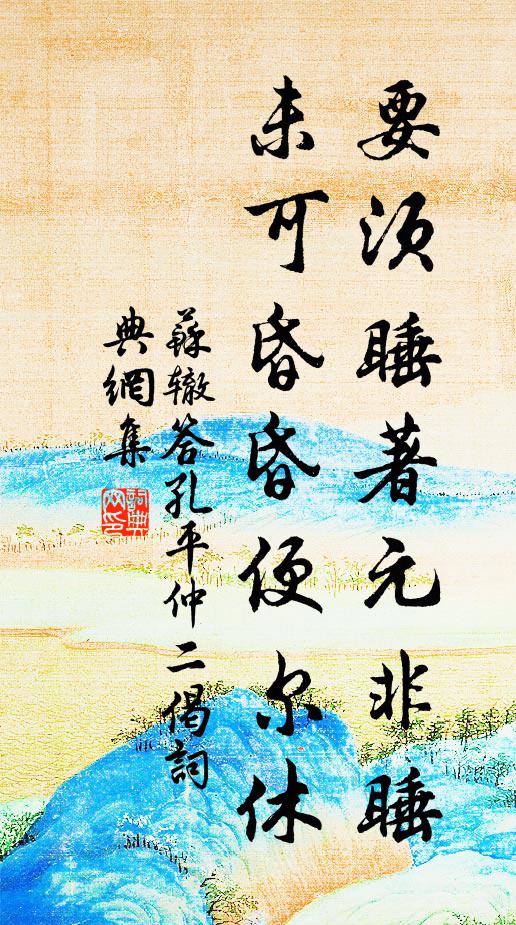 要须睡著元非睡
未可昏昏便尔休
蘇辙答孔平仲二偈詞
典網集